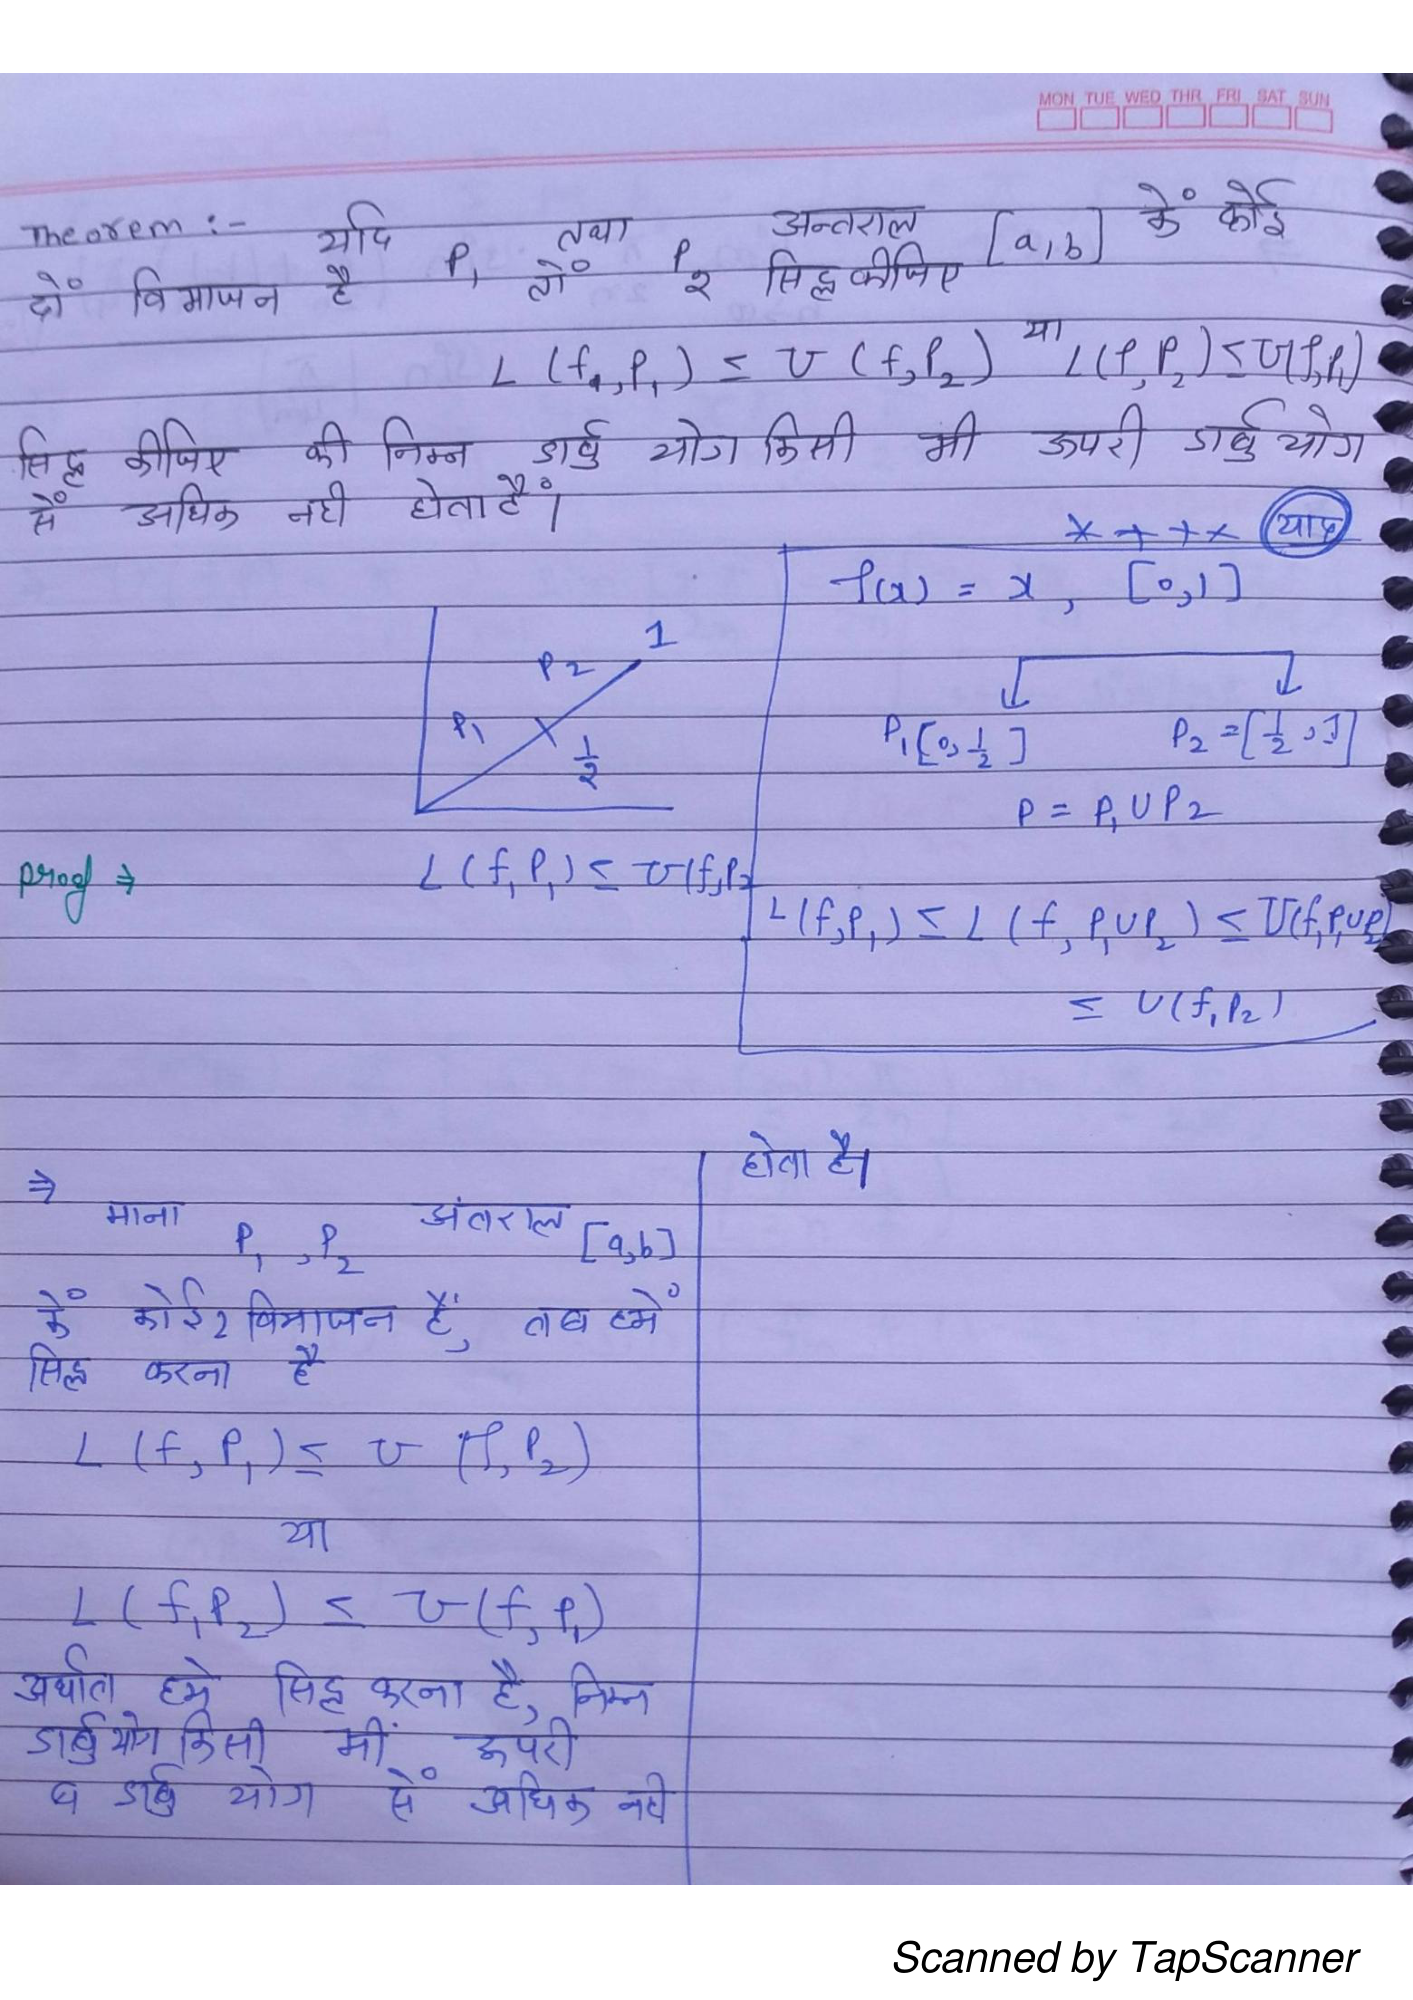 MON TUE WED THR FRI SAT SUN
Theorem :- यदि P₁ तथा P₂ अन्तराल [a,b] कें कोई
दों विभाजन है तों सिद्ध कीजिए
L (f, P₁) ≤ U (f, P₂) या L(f, P₂) ≤ U(f, P₁)
सिद्ध कीजिए की निम्न डार्बु योग किसी भी ऊपरी डार्बु योग
सें अधिक नही होता हैं।
याद
f(x) = x, [0,1]
1
P₂
P₁
1/2
P₁[0, 1/2] P₂ = [1/2, 1]
P = P₁ ∪ P₂
proof ⇒ L(f, P₁) ≤ U(f, P₂
L(f, P₁) ≤ L (f, P₁∪P₂) ≤ U(f, P₁∪P₂)
≤ U(f, P₂)
⇒ माना P₁, P₂ अंतराल [a,b]
कें कोई 2 विभाजन हैं, तब हमें
सिद्ध करना है
L (f, P₁) ≤ U (f, P₂)
या
L (f, P₂) ≤ U (f, P₁)
अर्थात हमे सिद्ध करना है, निम्न
डार्बु योग किसी भीं ऊपरी
डार्बु योग सें अधिक नही
होता है।
Scanned by TapScanner